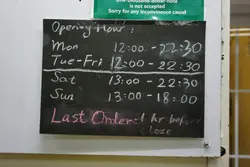 one-thousand-dollar note
is not accepted
Sorry for any inconvenience caused
Opening Hour:
Mon 12:00 - 22:30
Tue-Fri 12:00 - 22:30
Sat 13:00 - 22:30
Sun 13:00 - 18:00
Last Order: 1 hr before
lose